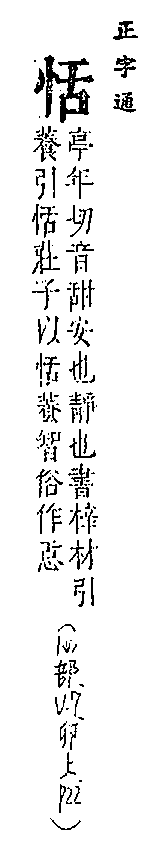 正字通
恬
亭年切音甜安也靜也書梓材引
養引恬莊子以恬養智俗作
(心部, V.7 卯上, p22)